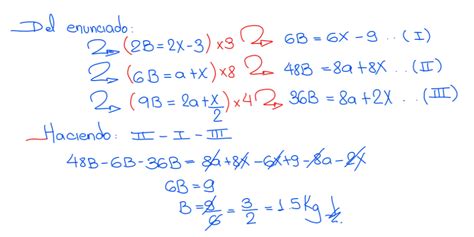 Del enunciado:
(2B = 2X - 3) x 3 6B = 6X - 9 .. (I)
(6B = a + x) x 8 48B = 8a + 8X ... (II)
(9B = 2a + x/2) x 4 36B = 8a + 2X ... (III)
Haciendo: II - I - III
48B - 6B - 36B = 8a + 8X - 6X + 9 - 8a - 2X
6B = 9
B = 9/6 = 3/2 = 1.5 Kg